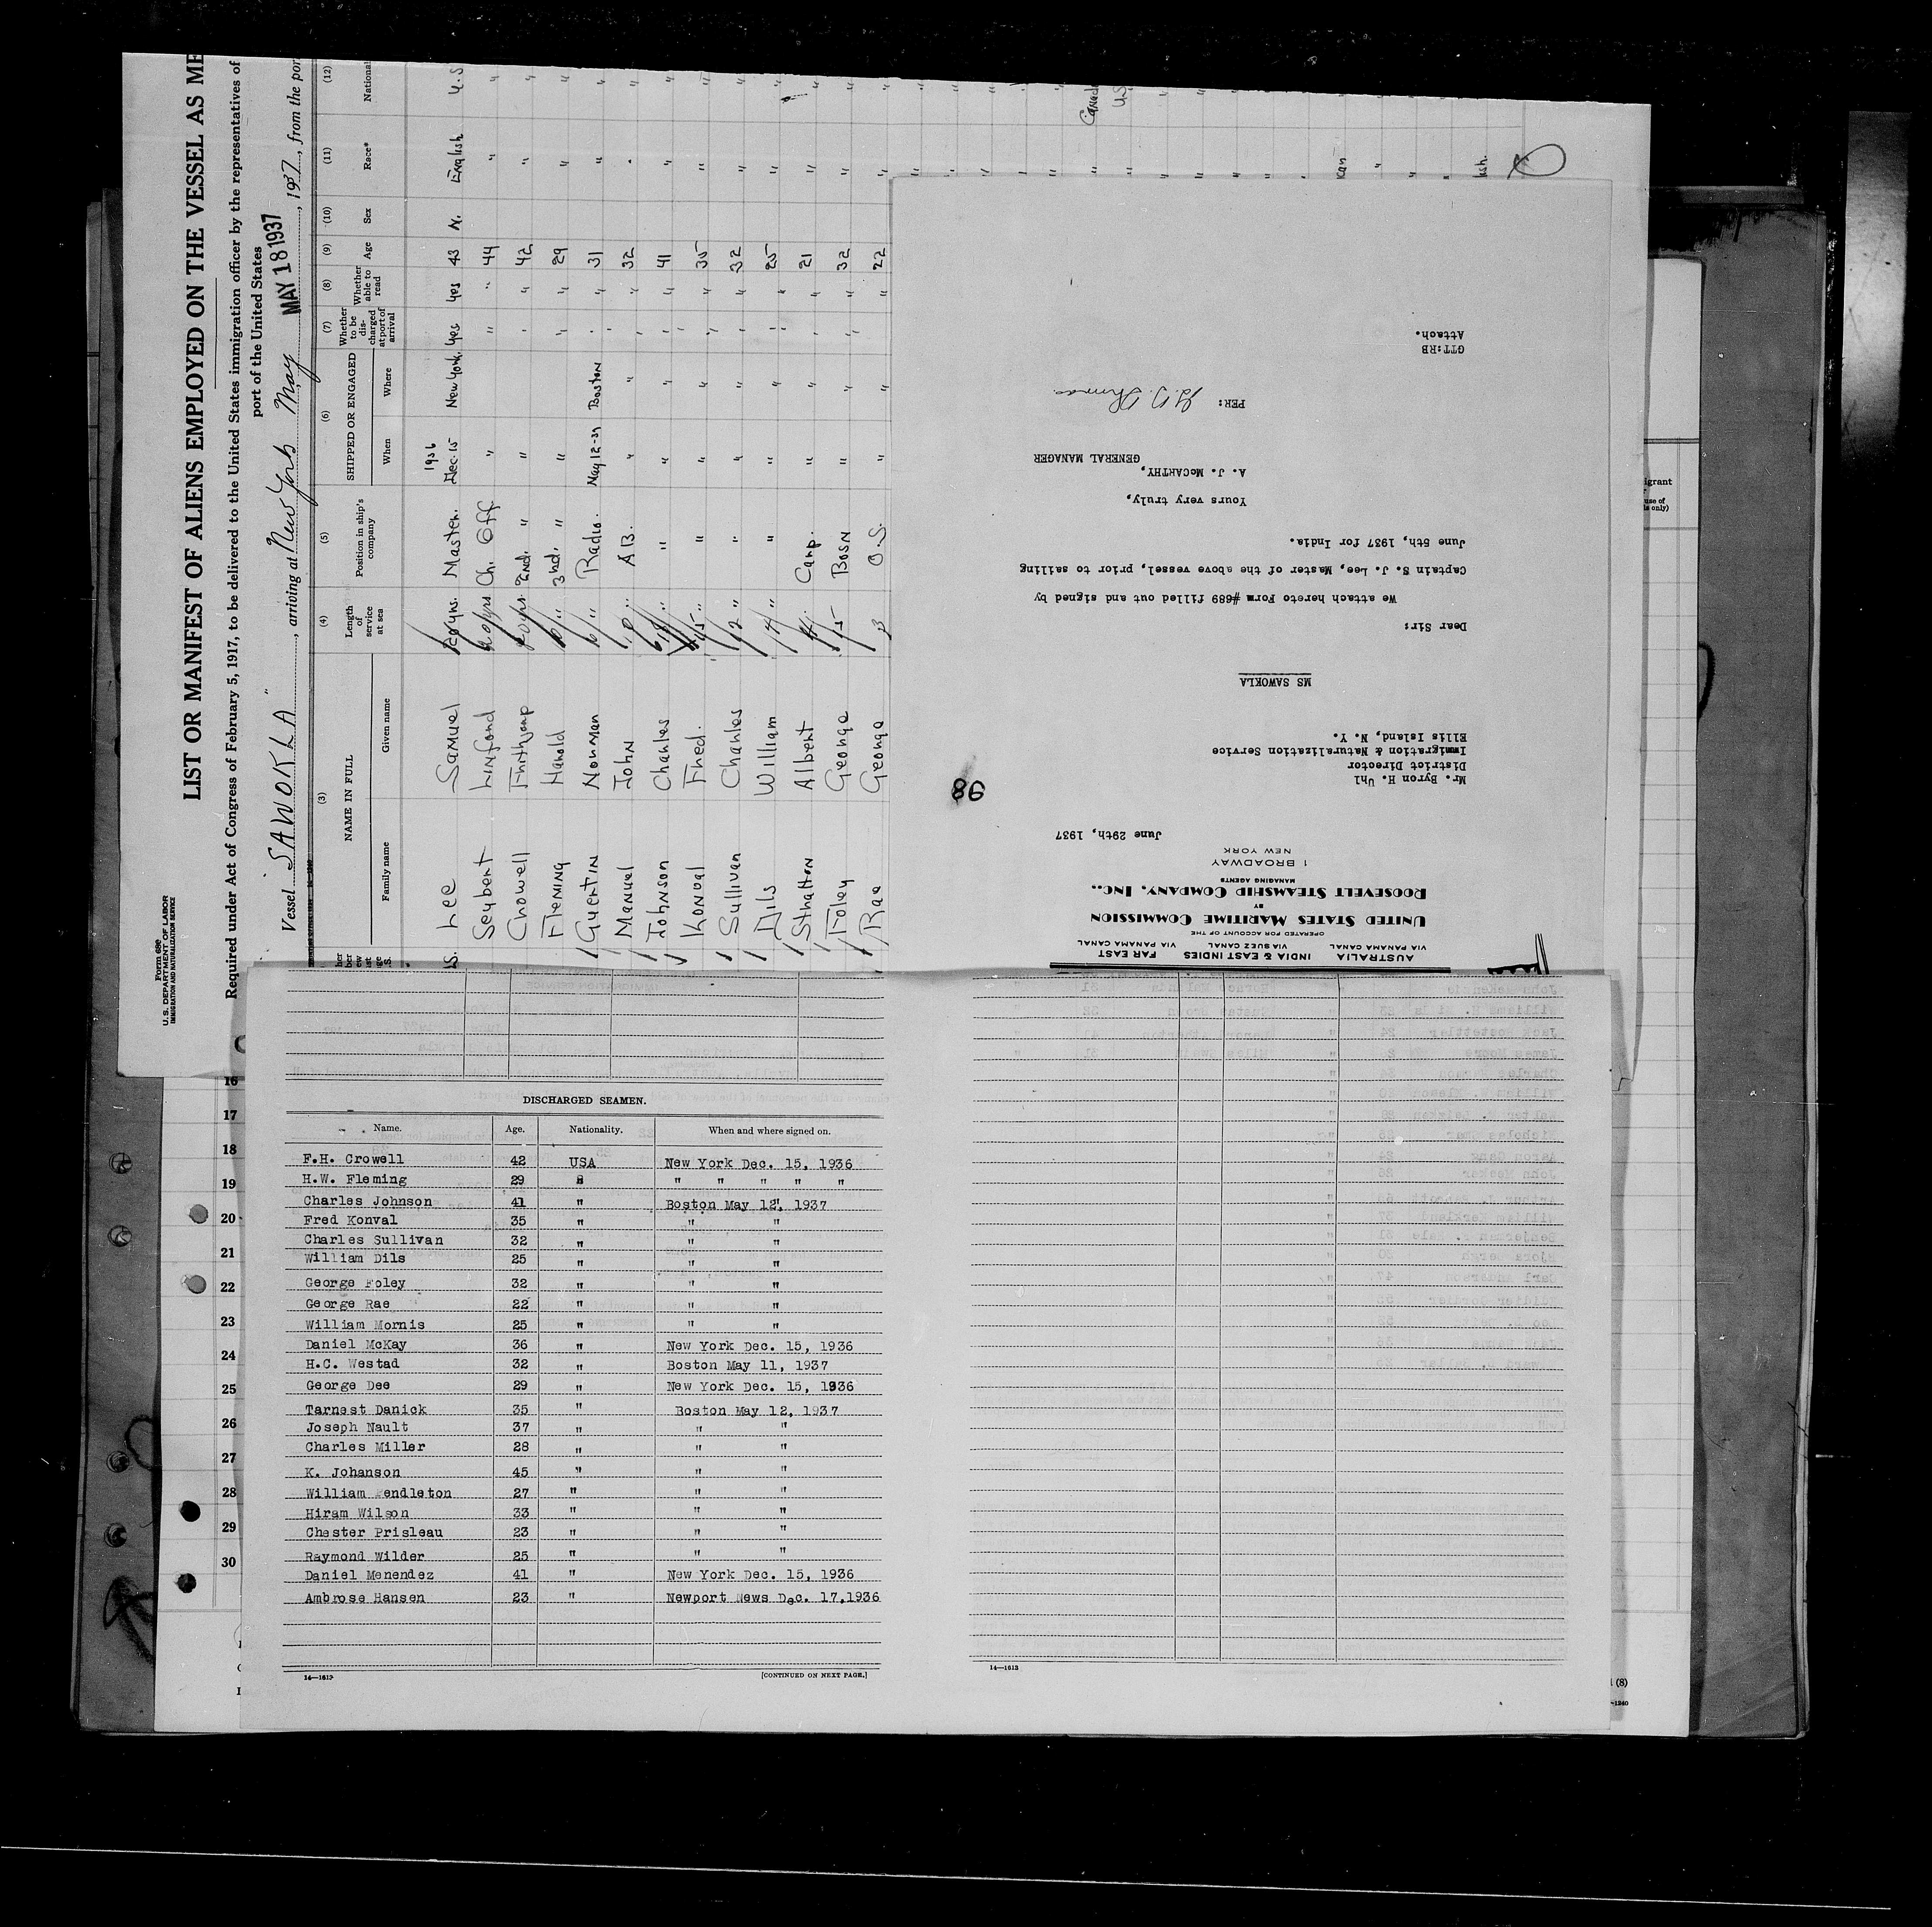 Form 689
U. S. DEPARTMENT OF LABOR
IMMIGRATION AND NATURALIZATION SERVICE
LIST OR MANIFEST OF ALIENS EMPLOYED ON THE VESSEL AS ME
Required under Act of Congress of February 5, 1917, to be delivered to the United States immigration officer by the representatives of
port of the United States
Vessel "SAWOKLA", arriving at New York May MAY 18 1937, 1937, from the por
(3) (4) (5) (6) (7) (8) (9) (10) (11) (12)
NAME IN FULL
Family name Given name
Length of service at sea
Position in ship's company
SHIPPED OR ENGAGED
When Where
Whether to be discharged at port of arrival
Whether able to read
Age Sex Race* National
1936
Lee Samuel 20yrs. Master. Dec. 15 New York. Yes Yes 43 M. English U.S
Seybert Linford 20yrs Ch. Off " " " 44 " "
Crowell Frithjorp 20yrs 2nd. " " " " 42 " "
Fleming Harold " 3rd. " " " " 29 " "
Guertin Norman " Radio. May 12-37 Boston " " 31 " "
Manuel John 10 " AB. " " " " 32 " "
Johnson Charles " " " " " " 41 " "
Konval Fred. 15 " " " " " " 35 " "
Sullivan Charles 12 " " " " " " 32 " "
Dils William " " " " " " 25 " "
Stratton Albert Carp. " " " " 21 " "
Foley George 5 Bosn " " " " 32 " "
Rae George 3 O.S. " " " 22 " "
Canad
U.S
AUSTRALIA INDIA & EAST INDIES FAR EAST
VIA PANAMA CANAL VIA SUEZ CANAL VIA PANAMA CANAL
OPERATED FOR ACCOUNT OF THE
UNITED STATES MARITIME COMMISSION
BY
ROOSEVELT STEAMSHIP COMPANY, INC.,
MANAGING AGENTS
1 BROADWAY
NEW YORK
June 29th, 1937
98
Mr. Byron H. Uhl
District Director
Immigration & Naturalization Service
Ellis Island, N. Y.
MS SAWOKLA
Dear Sir:
We attach hereto Form #689 filled out and signed by
Captain S. J. Lee, Master of the above vessel, prior to sailing
June 5th, 1937 for India.
Yours very truly,
A. J. McCARTHY,
GENERAL MANAGER
PER:
GTT:RB
Attach.
igrant
use of
ls only)
16
17
18
19
20
21
22
23
24
25
26
27
28
29
30
DISCHARGED SEAMEN.
Name. Age. Nationality. When and where signed on.
F.H. Crowell 42 USA New York Dec. 15, 1936
H.W. Fleming 29 " " " " " "
Charles Johnson 41 " Boston May 12, 1937
Fred Konval 35 " " "
Charles Sullivan 32 " " "
William Dils 25 " " "
George Foley 32 " " "
George Rae 22 " " "
William Mornis 25 " " "
Daniel McKay 36 " New York Dec. 15, 1936
H.C. Westad 32 " Boston May 11, 1937
George Dee 29 " New York Dec. 15, 1936
Tarnest Danick 35 " Boston May 12, 1937
Joseph Nault 37 " " "
Charles Miller 28 " " "
K. Johanson 45 " " "
William Pendleton 27 " " "
Hiram Wilson 33 " " "
Chester Prisleau 23 " " "
Raymond Wilder 25 " " "
Daniel Menendez 41 " New York Dec. 15, 1936
Ambrose Hansen 23 " Newport News Dec. 17,1936
14—1613 [CONTINUED ON NEXT PAGE.]
14—1613
(8)
—1240